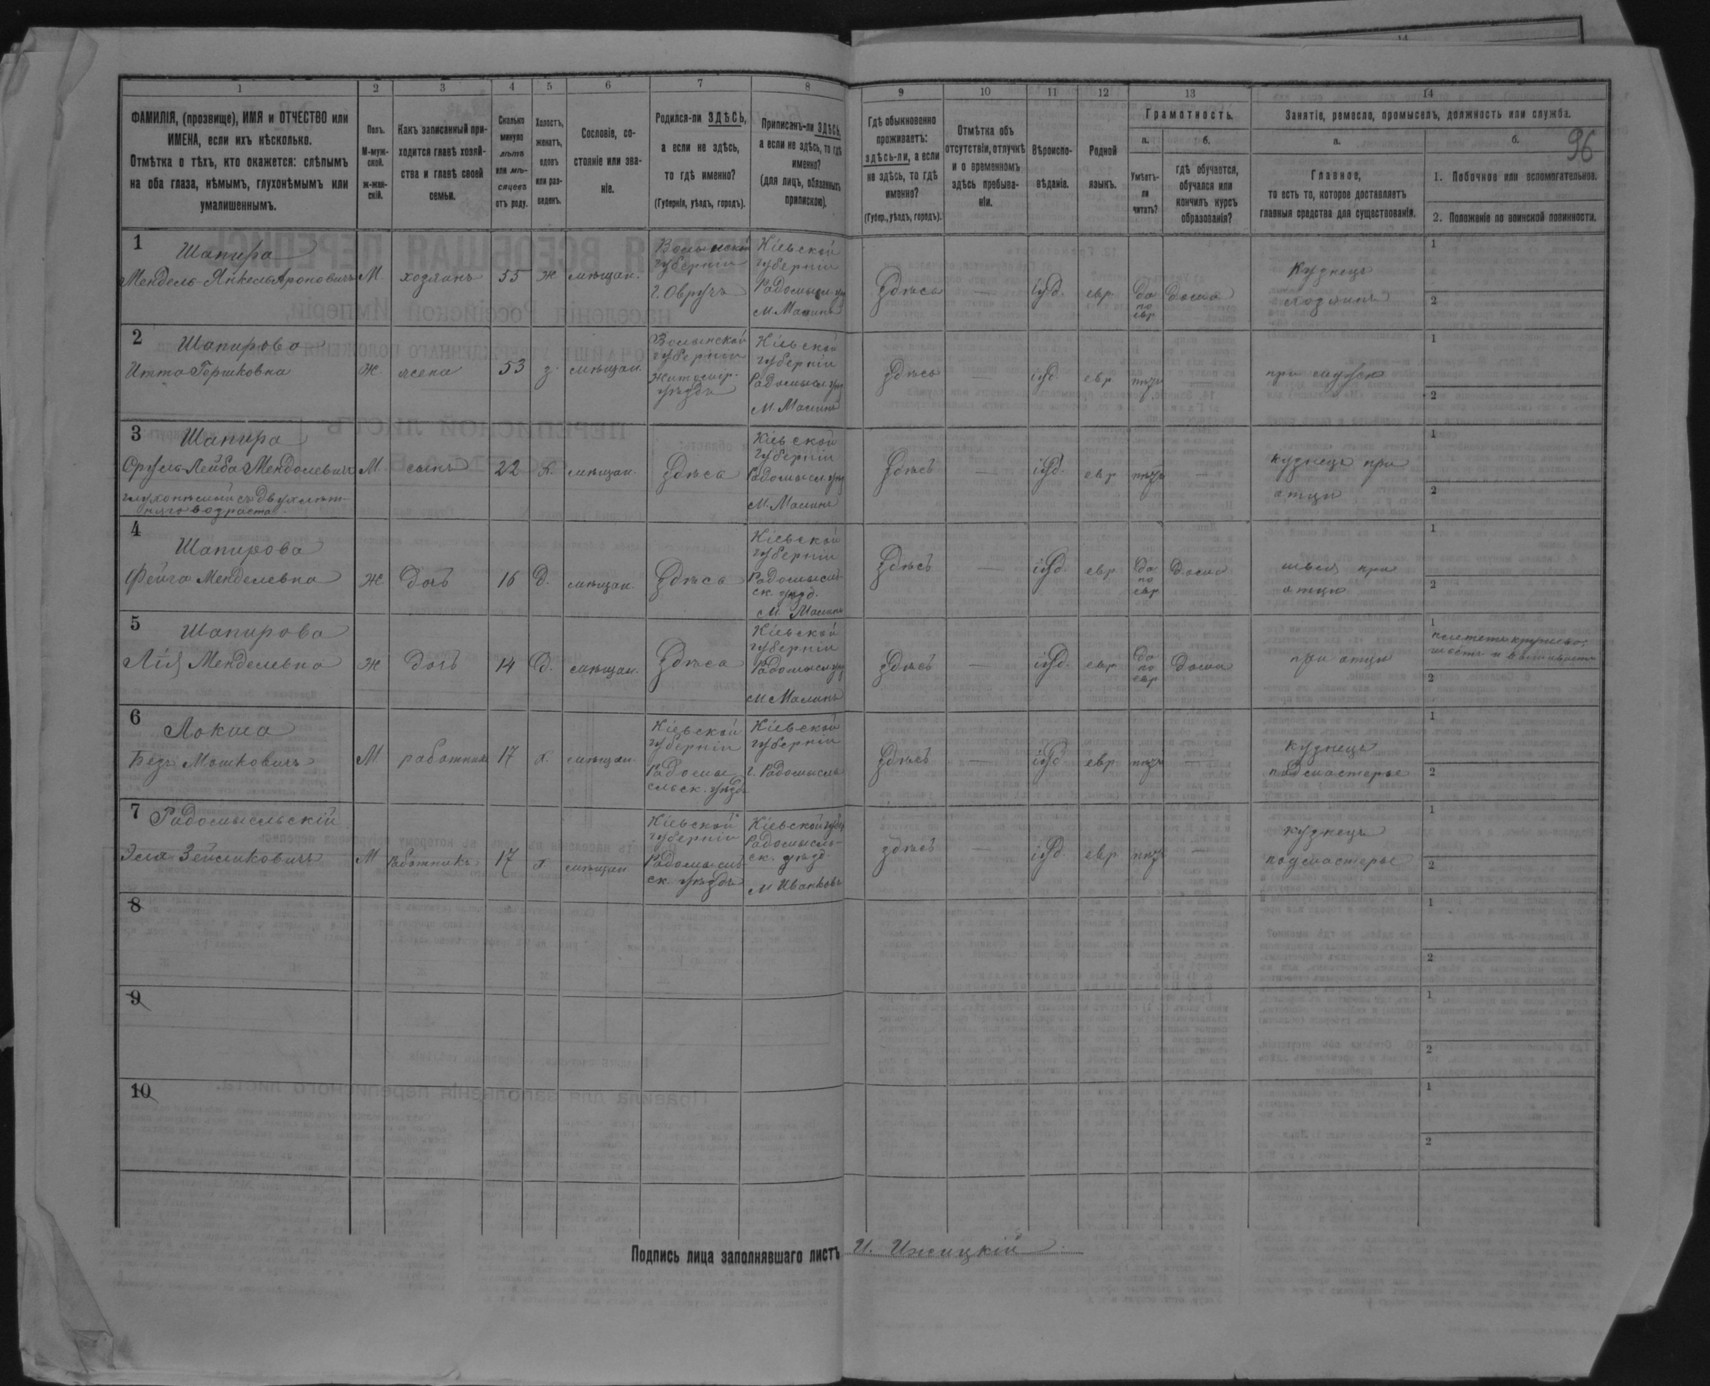 1
2
3
4
5
6
7
8
9
10
11
12
13
14
ФАМИЛІЯ, (прозвище), ИМЯ и ОТЧЕСТВО или
ИМЕНА, если ихъ нѣсколько.
Отмѣтка о тѣхъ, кто окажется: слѣпымъ
на оба глаза, нѣмымъ, глухонѣмымъ или
умалишеннымъ.
Полъ.
М-муж-
ской.
ж-жен-
скій.
Какъ записанный при-
ходится главѣ хозяй-
ства и главѣ своей
семьи.
Сколько
минуло
лѣтъ
или мѣ-
сяцевъ
отъ роду.
Холостъ,
женатъ,
вдовъ
или раз-
веденъ.
Сословіе, со-
стояніе или зва-
ніе.
Родился-ли ЗДѢСЬ,
а если не здѣсь,
то гдѣ именно?
(Губернія, уѣздъ, городъ).
Приписанъ-ли ЗДѢСЬ,
а если не здѣсь, то гдѣ
именно?
(для лицъ, обязанныхъ
припискою).
Гдѣ обыкновенно
проживаетъ:
здѣсь-ли, а если
не здѣсь, то гдѣ
именно?
(Губер., уѣздъ, городъ).
Отмѣтка объ
отсутствіи, отлучкѣ
и о временномъ
здѣсь пребыва-
ніи.
Вѣроиспо-
вѣданіе.
Родной
языкъ.
Грамотность.
а.
Умѣетъ-
ли
читать?
б.
Гдѣ обучается,
обучался или
кончилъ курсъ
образованія?
Занятіе, ремесло, промыселъ, должность или служба.
а.
Главное,
то есть то, которое доставляетъ
главныя средства для существованія.
б.
96
1. Побочное или вспомогательное.
2. Положеніе по воинской повинности.
1
Шапира
Мендель-Янкель Ароновичъ
М
хозяинъ
55
ж
мѣщан.
Волынской
губерніи
г. Овручъ
Кіевской
губерніи
Радомысл. уѣзд
м Малинъ
Здѣсь
—
іуд.
евр
да
по
евр
Дома
Кузнецъ
хозяинъ
1
2
2
Шапирова
Итта Гершковна
Ж
жена
53
з.
мѣщан.
Волынской
губерніи
Житомир.
уѣздъ
Кіевской
губерніи
Радомысл уѣзд
м Малинъ
Здѣсь
—
іуд
евр
нѣтъ
—
при мужѣ
1
2
3
Шапира
Сруль-Лейба Менделевичъ
глухонѣмый съ двухлѣт-
няго возраста
М
сынъ
22
х.
мѣщан.
Здѣсь
Кіевской
губерніи
Радомысл уѣзд
м. Малинъ
Здѣсь
—
іуд.
евр
нѣтъ
—
кузнецъ при
отцѣ
1
2
4
Шапирова
Фейга Менделевна
Ж
дочь
16
д.
мѣщан.
Здѣсь
Кіевской
губерніи
Радомысль-
ск. уѣзд.
м. Малинъ
Здѣсь
—
іуд
евр
да
по
евр
Дома
швея при
отцѣ
1
2
5
Шапирова
Лія Менделевна
Ж
дочь
14
д.
мѣщан.
Здѣсь
Кіевской
губерніи
Радомысл уѣзд
м Малинъ
Здѣсь
—
іуд.
евр
да
по
евр
Дома
при отцѣ
1
2
6
Локша
Мошковичъ
М
работникъ
17
х.
мѣщан
Кіевской
губерніи
Радомы-
сльск. уѣзд.
Кіевской
губерніи
г. Радомысль
Здѣсь
—
іуд
евр.
нѣтъ
—
кузнецъ
подмастерье
1
2
7
Радомысльскій
Эля Зейликовичъ
М
работникъ
17
х
мѣщан
Кіевской
губерніи
Радомысль-
ск уѣздъ
Кіевской губер
Радомысль-
ск. уѣзд
м Иванковъ
здѣсь
—
іуд
евр
нѣтъ
—
кузнецъ
подмастерье
1
2
8
1
2
9
1
2
10
1
2
Подпись лица заполнявшаго листъ И. Ижицкій